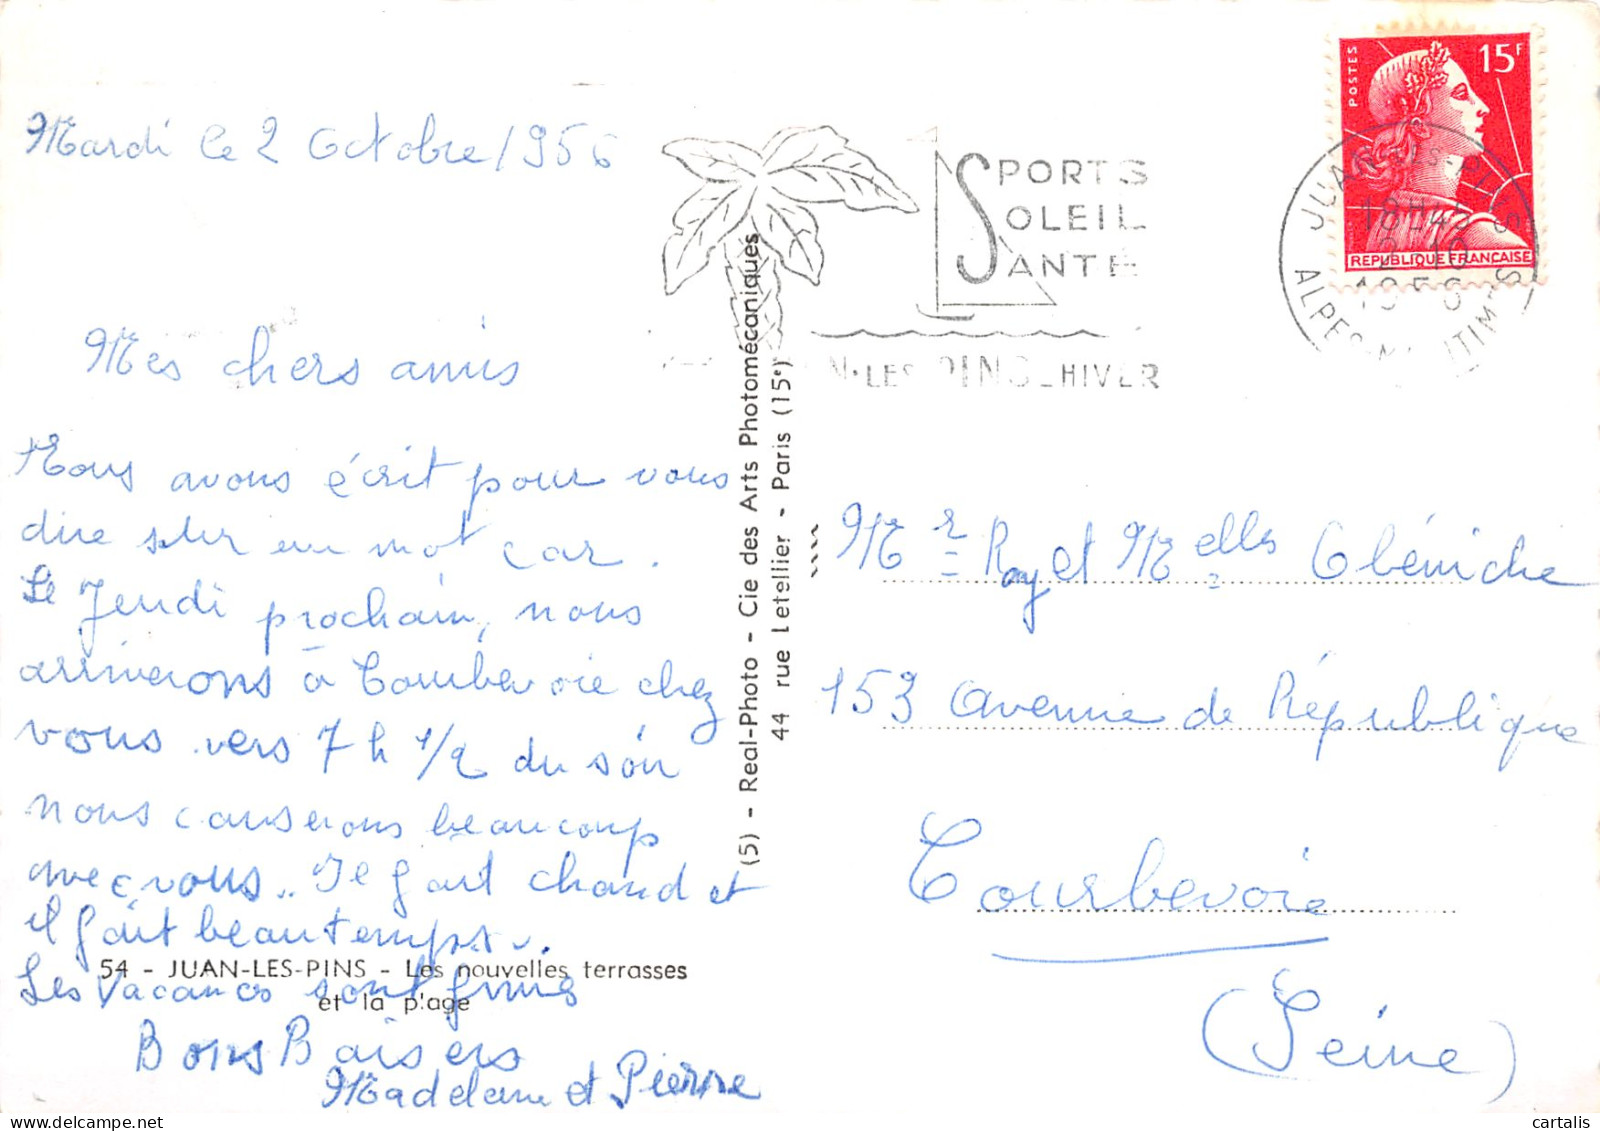 Mardi le 2 Octobre 1956
Mes chers amis
Nous avons écrit pour vous
dire un mot car.
Le Jeudi prochain, nous
arriverons à Courbevoie chez
vous vers 7 h 1/2 du soir
nous causerons beaucoup
avec vous.. Il fait chaud et
il fait beau temps.
Les Vacances sont finies
Bons Baisers
Madeleine et Pierre
54 - JUAN-LES-PINS - Les nouvelles terrasses
et la plage
(5) - Real-Photo - Cie des Arts Photomécaniques
44 rue Letellier - Paris (15e)
SPORTS
SOLEIL
SANTÉ
N-LES-PINS HIVER
POSTES
15F
REPUBLIQUE FRANÇAISE
JUAN-LES-PINS
18H45
2-10
1956
ALPES-MARITIMES
Mr Roy et Melles
153 avenue de République
Courbevoie
(Seine)
cartalis